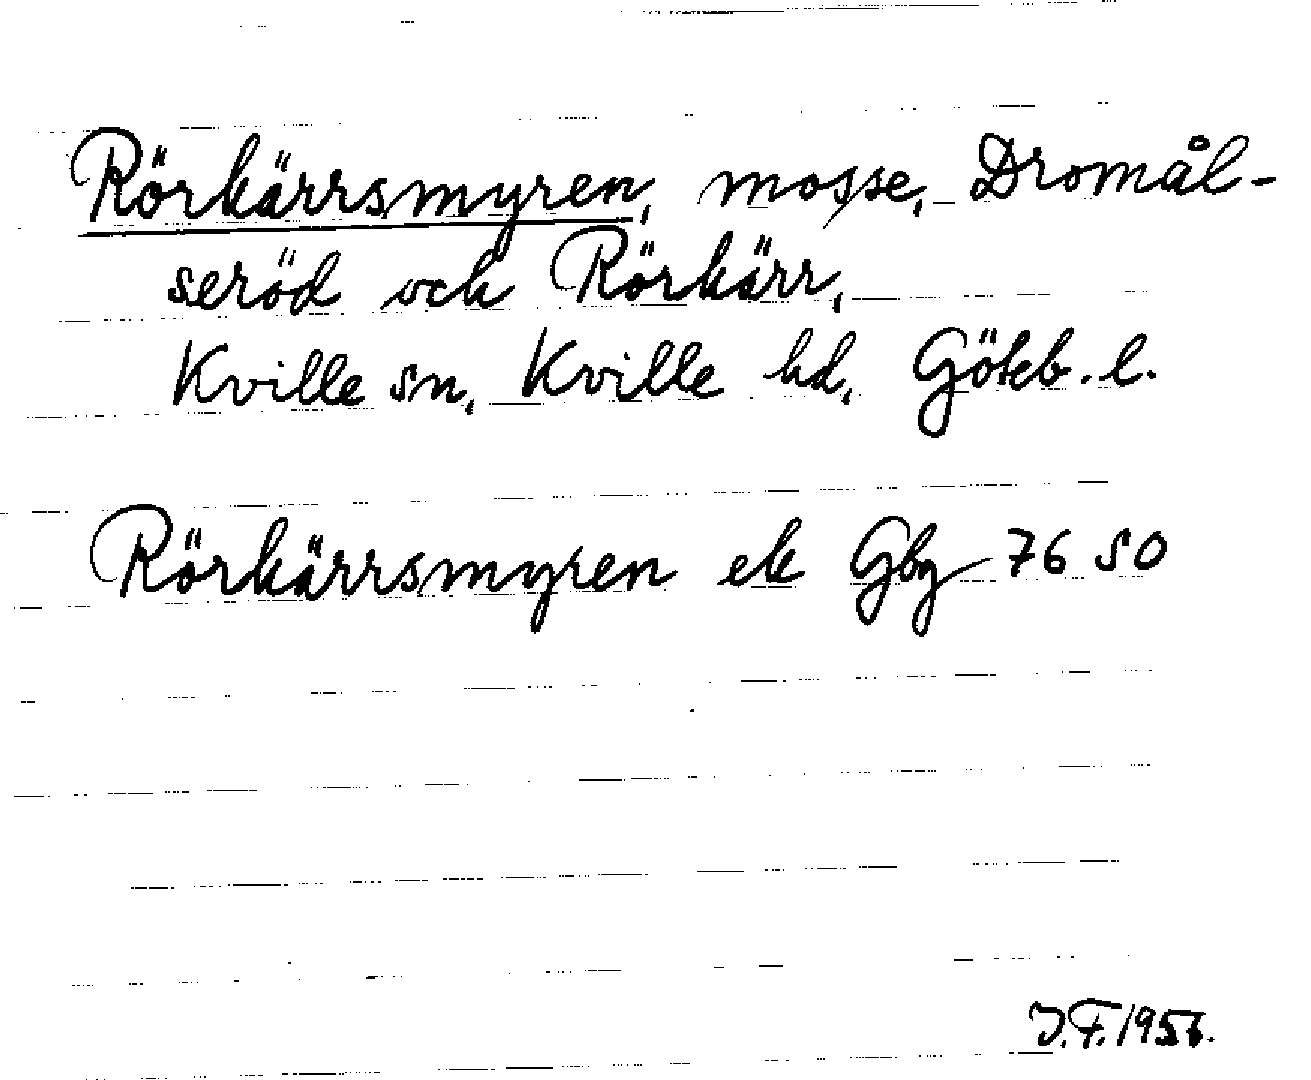 Rörkärrsmyren, mosse, Dromål-
seröd och Rörkärr,
Kville sn, Kville hd, Göteb. l.
Rörkärrsmyren ek Gbg 76 SO
J.F. 1956.